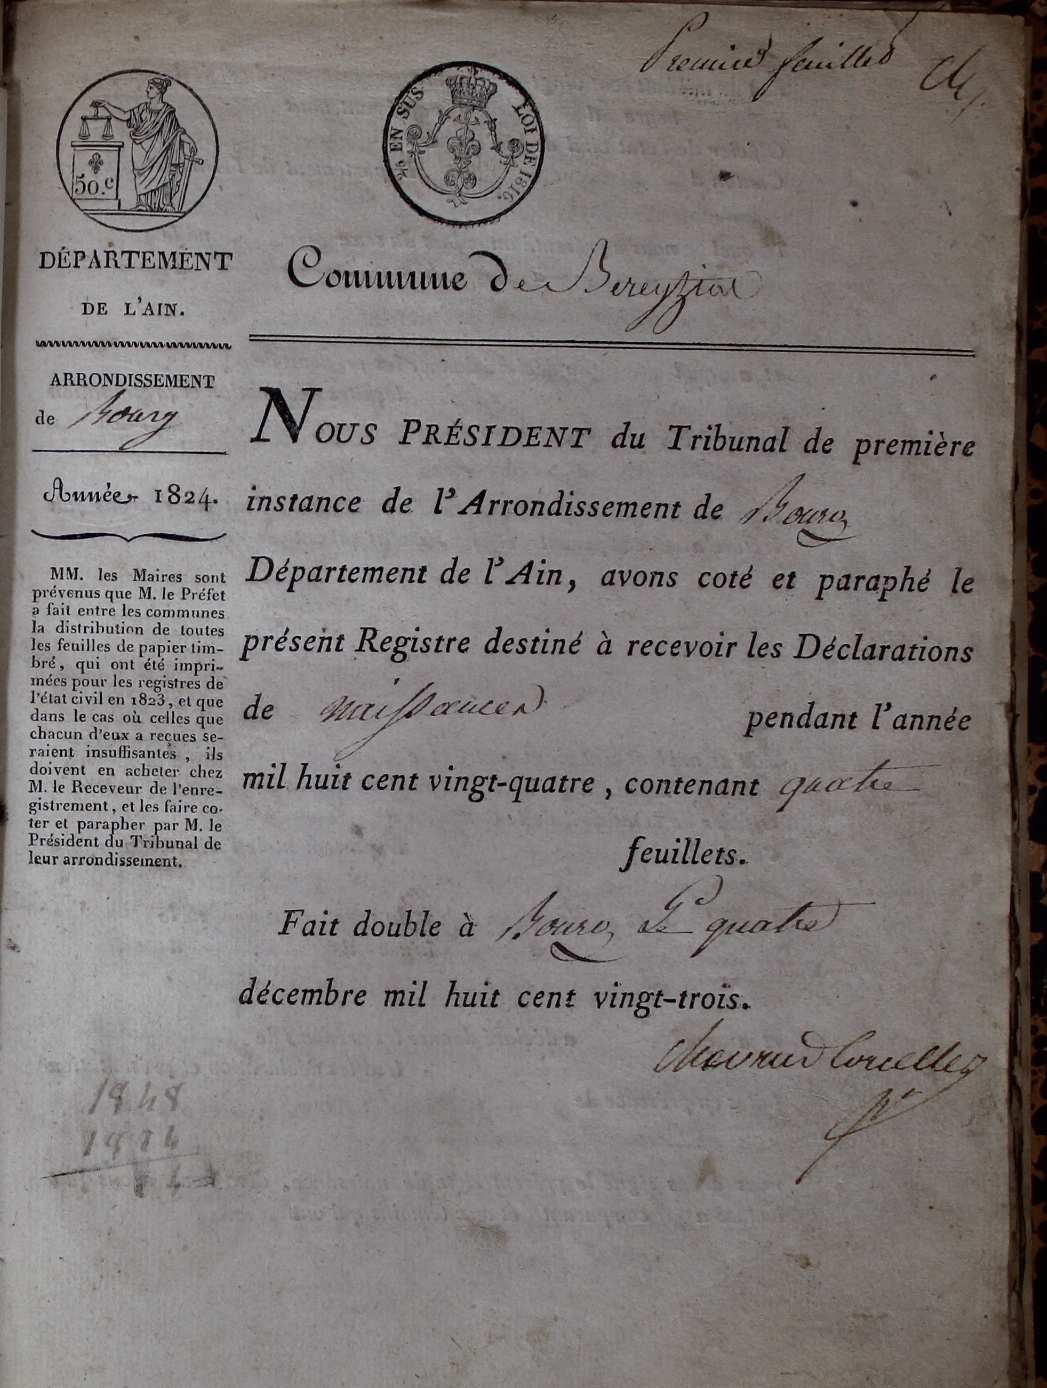 Premier feuillet
50.c
EN SUS
LOI DE 1816.
DÉPARTEMENT
DE L'AIN.
Commune de Bereyziat
ARRONDISSEMENT
de Bourg
Année 1824.
MM. les Maires sont
prévenus que M. le Préfet
a fait entre les communes
la distribution de toutes
les feuilles de papier tim-
bré, qui ont été impri-
mées pour les registres de
l'état civil en 1823, et que
dans le cas où celles que
chacun d'eux a reçues se-
raient insuffisantes, ils
doivent en acheter chez
M. le Receveur de l'enre-
gistrement, et les faire co-
ter et parapher par M. le
Président du Tribunal de
leur arrondissement.
NOUS PRÉSIDENT du Tribunal de première
instance de l'Arrondissement de Bourg
Département de l'Ain, avons coté et paraphé le
présent Registre destiné à recevoir les Déclarations
de naissances pendant l'année
mil huit cent vingt-quatre, contenant quatre
feuillets.
Fait double à Bourg Le quatre
décembre mil huit cent vingt-trois.